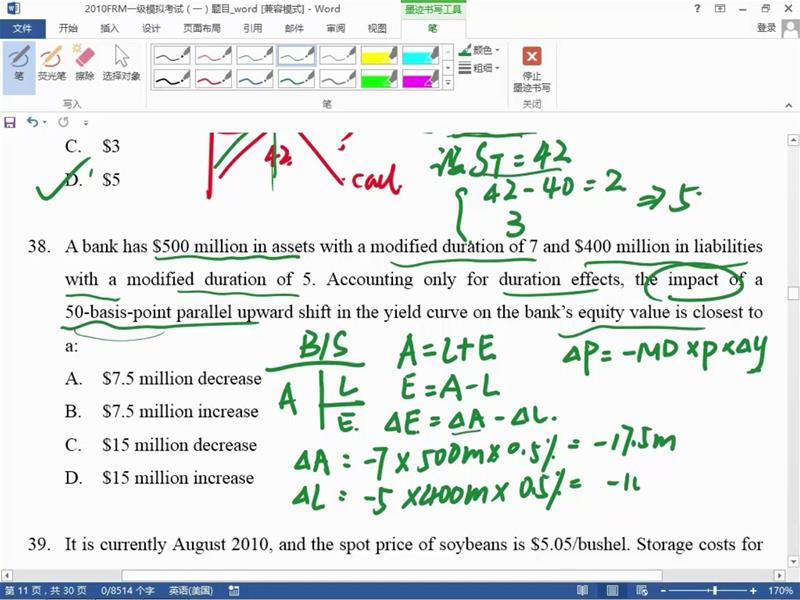 2010FRM一级模拟考试（一）题目_word [兼容模式] - Word
墨迹书写工具
文件 开始 插入 设计 页面布局 引用 邮件 审阅 视图 笔 登录
笔 荧光笔 擦除 选择对象 颜色 粗细 停止墨迹书写
写入 笔 关闭
C. $3
D. $5
42
caul
ST = 42
42-40=2
3
⇒ 5
38. A bank has $500 million in assets with a modified duration of 7 and $400 million in liabilities
with a modified duration of 5. Accounting only for duration effects, the impact of a
50-basis-point parallel upward shift in the yield curve on the bank's equity value is closest to
a:
B/S A=L+E ΔP=-MD×P×Δy
A. $7.5 million decrease
A L E=A-L
B. $7.5 million increase
E. ΔE=ΔA-ΔL.
C. $15 million decrease
ΔA = -7×500m×0.5%= -17.5m
D. $15 million increase
ΔL = -5×400m×0.5%= -1
39. It is currently August 2010, and the spot price of soybeans is $5.05/bushel. Storage costs for
第 11 页，共 30 页 0/8514 个字 英语(美国) 170%